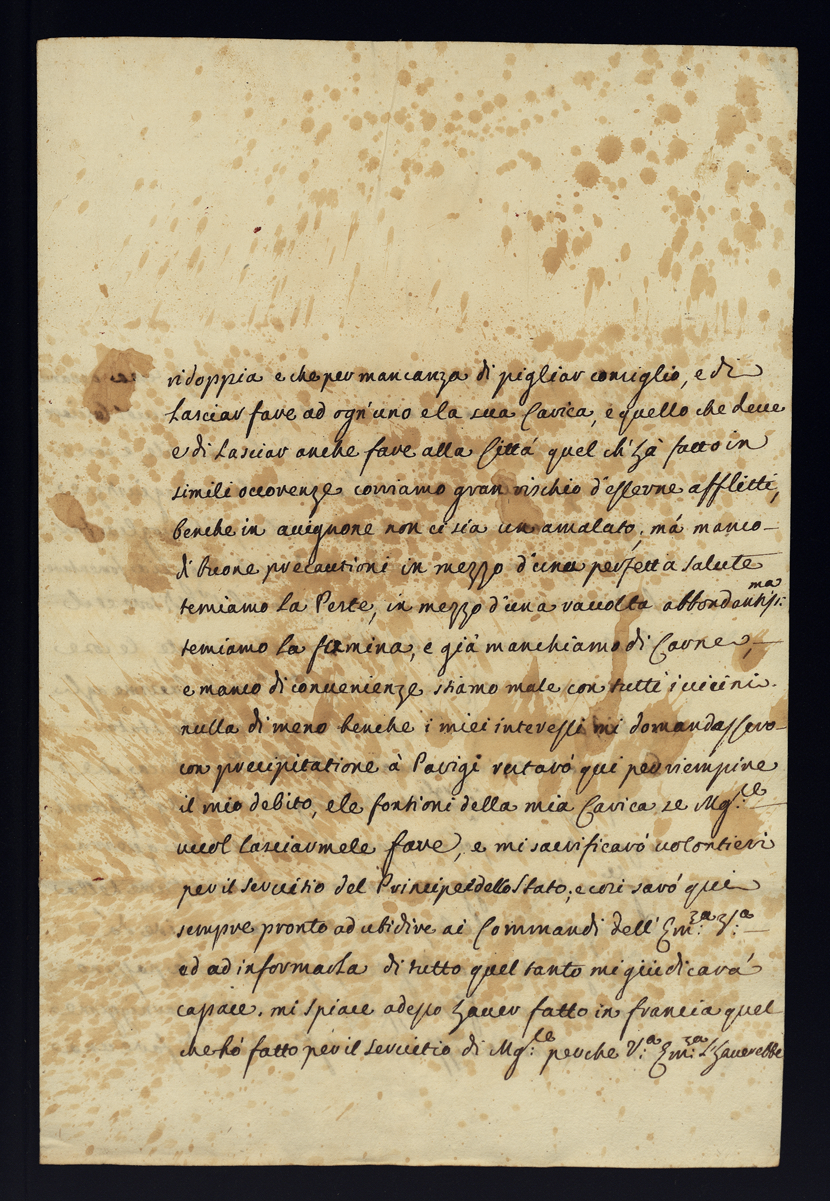 ridoppia e che per mancanza di pigliar conseglio, e di
Lasciar fare ad ogn'uno e la sua Carica, e quello che deve
e di Lasciar anche fare alla Città quel ch'hà fatto in
simili occorenze corriamo gran rischio d'esserne afflitti,
benche in avignone non ci sia un amalato, má manco
di buone precautioni in mezzo d'una perfetta salute
temiamo La Peste, in mezzo d'una raccolta abbondantiss:ma
temiamo la famina, e già manchiamo di Carne,
e manco di convenienze stiamo male con tutti i vicini.
nulla di meno benche i miei interessi mi domandassero
con precipitatione à Parigi restaró qui per riempire
il mio debito, e le fontioni della mia Carica se Mg.re
vuol Lasciarmele fare, e mi sacrificaró volontieri
per il servitio del Principe e dello Stato, e cosi saró qui
sempre pronto ad ubidire ai Commandi dell'Em:za V:a
ed ad informarla di tutto quel tanto mi giudicará
capace. mi spiace adesso haver fatto in francia quel
che hó fatto per il servitio di Mg:re perche V:a Em:za l'haverebbe